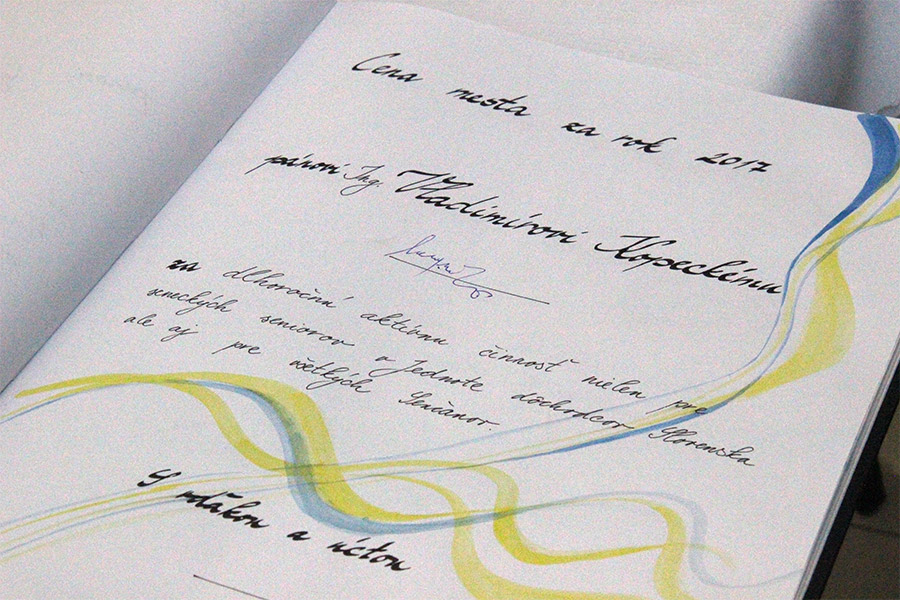 Cena mesta za rok 2017
pánovi Ing. Vladimírovi Kopeckému
za dlhoročnú aktívnu činnosť nielen pre
seneckých seniorov v Jednote dôchodcov Slovenska
ale aj pre všetkých Senčanov
S vďakou a úctou